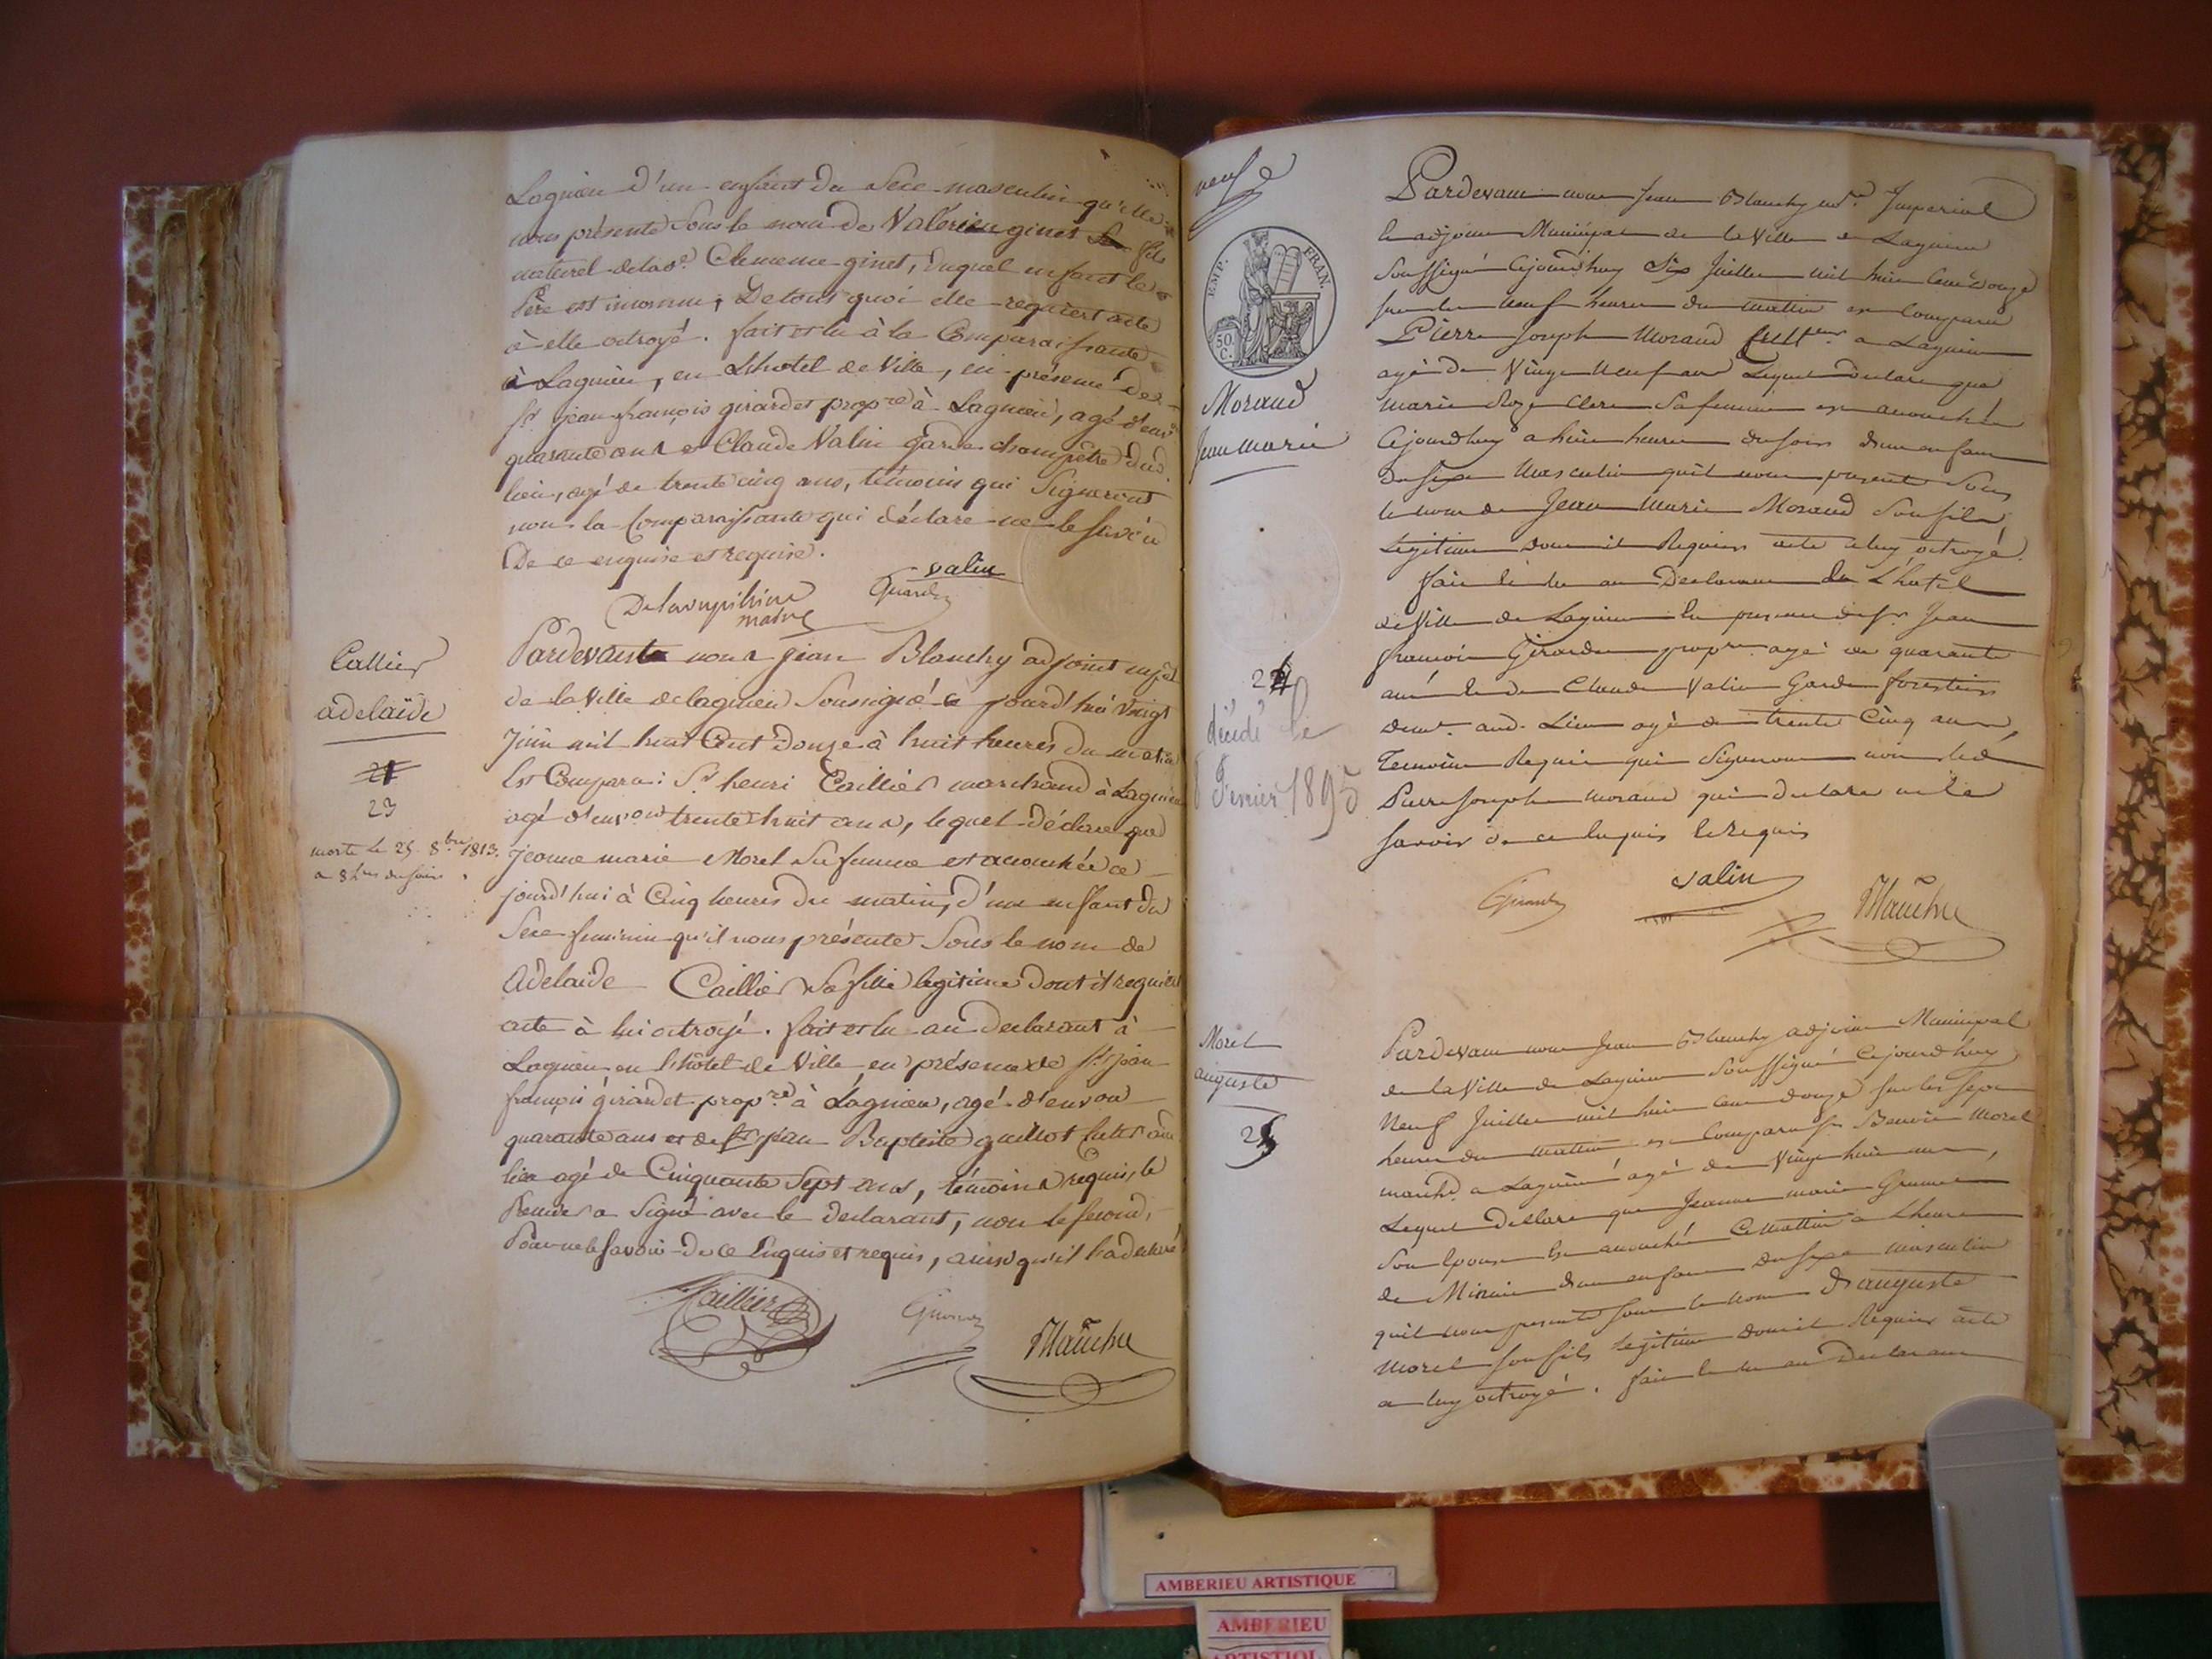 Lagnieu d'un enfant du Sexe masculin qu'elle
nous présente Sous le nom de Valérien ginet fils
naturel de lad.e Clemence ginet, duquel enfant le
Père est inconnu; De tout quoi elle requiert acte
à elle octroyé. fait et lu à la Comparaissante
à Lagnieu, en L'hotel de Ville, en présence des
Sr jean françois girardet prop.re à Lagnieu, agé d'env.
quarante ans et Claude Valin garde champêtre dud.
lieu, agé de trente cinq ans, témoins qui Signeront
non la Comparaissante qui déclare ne le Savoir
De ce enquise et requise.
valin
Girardet
maire
Caillier
adelaïde
21
23
morte le 25 8bre 1813.
a 8 hres du soir
Pardevant nous jean Blanchy adjoint
de la Ville de lagnieu Soussigné ce jourd'hui Vingt
Juin mil huit Cent Douze à huit heures du matin
Est Comparu: Sr henri Caillier marchand à Lagnieu
agé d'environ trente huit ans, lequel déclare que
jeanne marie Morel Sa femme est accouchée ce
jourd'hui à Cinq heures du matin, d'un enfant du
Sexe feminin qu'il nous présente Sous le nom de
Adelaïde Caillier Sa fille legitime dont il requiert
acte à lui octroyé. fait et lu au declarant à
Lagnieu en l'hôtel de Ville en présence de Sr jean
françois girardet prop.re à Lagnieu, agé d'environ
quarante ans et de Sr jean Baptiste guillot
lieu agé de Cinquante Sept ans, témoins requis, le
Premier a Signé avec le declarant, non le second,
Pour ne le Savoir De ce Enquis et requis, ainsi qu'il l'a declaré
Caillier
Girardet
Blanchy
neuf
EMP. FRAN.
50. C.
Moraud
Jean marie
24
décédé le
8 Fevrier 1895
Pardevant nous Jean Blanchy Imperial
adjoint Municipal de la Ville de Lagnieu
Soussigné Cejourdhuy Six Juillet mil huit Cent douze
sur les neuf heures du mattin est Comparu
Pierre Joseph Moraud Cultt.eur a Lagnieu
agé de Vingt neuf ans Lequel declare que
marie Roze Clerc Sa femme est accouchée
Cejourdhuy a huit heures du soir d'un enfant
du sexe Masculin quil nous presente Sous
le nom de Jean Marie Moraud Son fils
Legitime dont il Requiert acte a luy octroyé.
fait et lu au Declarant En L'hotel
de Ville de Lagnieu En presence de Sr Jean
francois Girardet propre agé de quarante
ans et de Claude Valin Garde forestier
dem.t aud. Lieu agé de trente Cinq ans,
Temoins Requis qui Signeront non led.
Pierre Joseph Moraud qui declare ne le
savoir de ce Enquis et Requis
Girardet
valin
Blanchy
Morel
auguste
25
Pardevant nous Jean Blanchy adjoint Municipal
de la Ville de Lagnieu Soussigné Cejourdhuy
Neuf Juillet mil huit Cent douze sur les sept
heures du mattin est Comparu Sr Benoit Morel
march.d a Lagnieu agé de Vingt huit ans,
Lequel Declare que Jeanne marie
Son Epouse Est accouchée Ce mattin a L'heure
de Minuit d'un enfant du sexe masculin
quil nous presente sous le nom D'auguste
Morel son fils Legitime dont il Requiert acte
a luy octroyé. fait et lu au Declarant
AMBERIEU ARTISTIQUE
AMBERIEU
ARTISTIQU